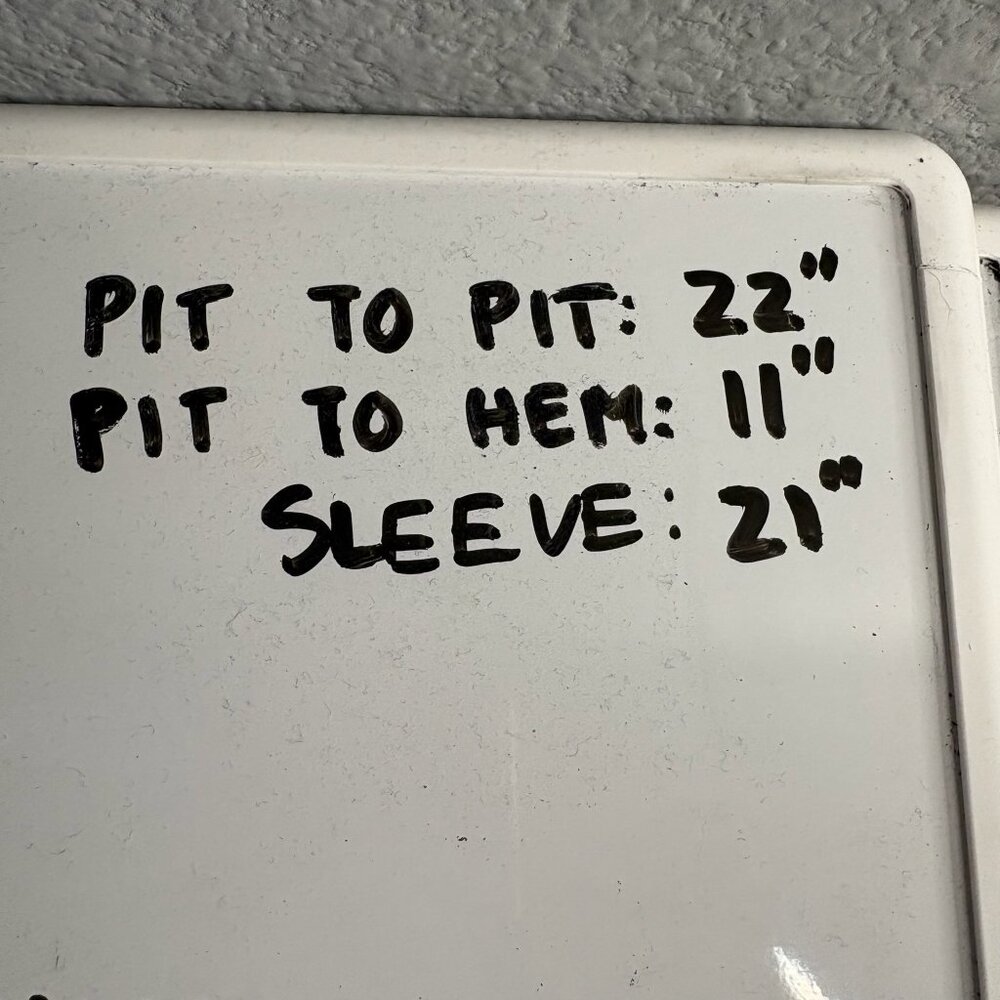 PIT TO PIT: 22"
PIT TO HEM: 11"
SLEEVE: 21"